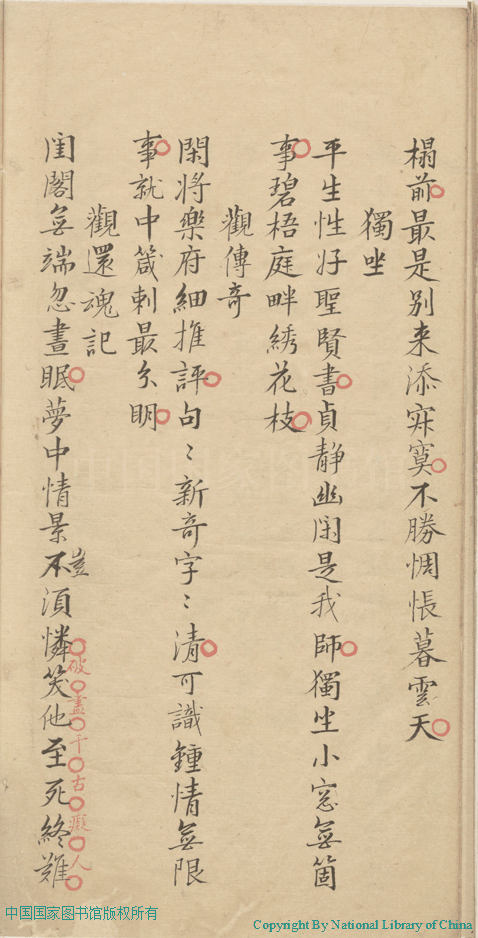 榻前最是别来添寂寞不勝惆悵暮雲天
獨坐
平生性好聖賢書貞靜幽閑是我師獨坐小窓無箇
事碧梧庭畔綉花枝
觀傳奇
閑將樂府細推評句〻新奇字〻清可識鍾情無限
事就中箴刺最分明
觀還魂記
閨閣無端忽晝眠夢中情景不須憐笑他至死終難
豈
破盡千古癡人
中国国家图书馆版权所有
Copyright By National Library of China